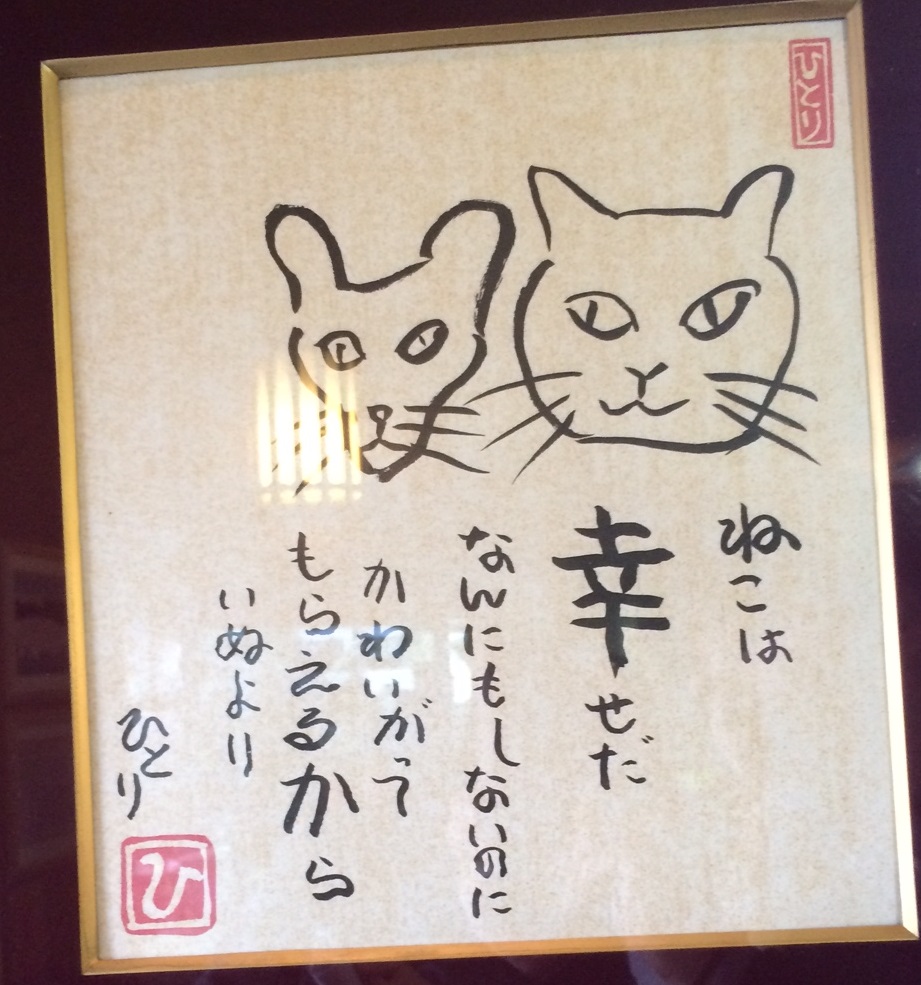 ひとり
ねこは
幸せだ
なんにもしないのに
かわいがって
もらえるから
いぬより
ひとり
ひ